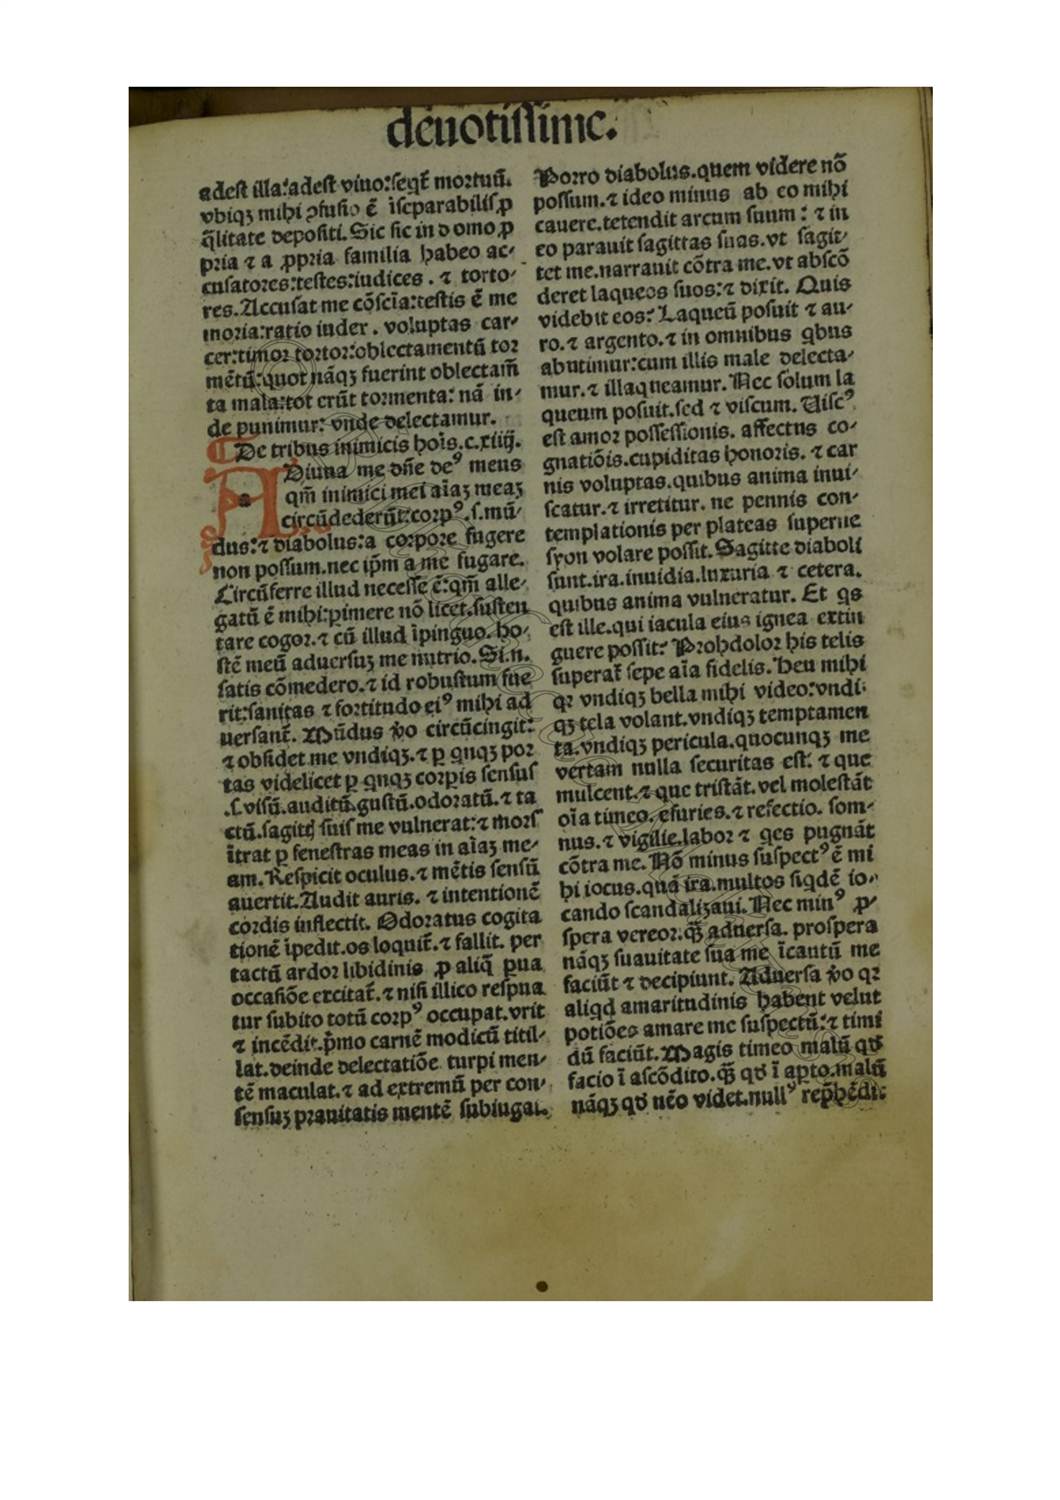 deuotissime.
adest illa:adest viuo:seqt̃ mortuũ.
vbiqꝫ mihi ꝯfusio ẽ ĩseparabilis ꝓ
q̃litate depositi. Sic sic in domo ꝓ
pria ⁊ a ꝓpria familia habeo ac-
cusatores:testes:iudices . ⁊ torto-
res. Accusat me cõscĩa:testis ẽ me
moria:ratio iudex . voluptas car-
cer:timor tortor:oblectamentũ tor
mẽtũ:quot nãqꝫ fuerint oblectam̃
ta mala:tot erũt tormenta: nã in-
de punimur: vnde delectamur.
De tribus inimicis hoĩs.c.xiiij.
ADiuua me dñe deꝰ meus
qm̃ inimici mei aĩaꝫ meaꝫ
circũdederũt:corpꝰ.s.mũ-
dus:⁊ diabolus:a corpore fugere
non possum.nec ip̃m a me fugare.
Circũferre illud necesse ẽ:qm̃ alle-
gatũ ẽ mihi:ꝑimere nõ licet.susten
tare cogor.⁊ cũ illud ĩpinguo. ho-
stẽ meũ aduersuꝫ me nutrio. Si.n.
satis cõmedero.⁊ id robustum fue
rit:sanitas ⁊ fortitudo eiꝰ mihi ad
uersant̃. Mũdus ṽo circũcingit:
⁊ obsidet me vndiqꝫ.⁊ ꝑ qnqꝫ por
tas videlicet ꝑ qnqꝫ corꝑis sensus
.s.visũ.auditũ.gustũ.odoratũ.⁊ ta
ctũ.sagitꝭ suis me vulnerat:⁊ mors
ĩtrat ꝑ fenestras meas in aĩaꝫ me-
am. Respicit oculus.⁊ mẽtis sensũ
auertit. Audit auris. ⁊ intentionẽ
cordis inflectit. Odoratus cogita
tionẽ ĩpedit.os loquit̃.⁊ fallit. per
tactũ ardor libidinis ꝓ aliq̃ ꝑua
occasiõe excitat̃.⁊ nisi illico respua
tur subito totũ corpꝰ occupat.vrit
⁊ incẽdit.p̃mo carnẽ modicũ titil-
lat.deinde delectatiõe turpi men-
tẽ maculat.⁊ ad extremũ per con-
sensuꝫ prauitatis mentẽ subiugat.
Porro diabolus.quem videre nõ
possum.⁊ ideo minus ab eo mihi
cauere.tetendit arcum suum : ⁊ in
eo parauit sagittas suas.vt sagit-
tet me.narrauit cõtra me.vt abscõ
deret laqueos suos:⁊ dixit. Quis
videbit eos: Laqueũ posuit ⁊ au-
ro.⁊ argento.⁊ in omnibus qbus
abutimur:cum illis male delecta-
mur.⁊ illaqueamur. Nec solum la
queum posuit.sed ⁊ viscum. Uiscꝰ
est amor possessionis. affectus co-
gnatiõis.cupiditas honoris. ⁊ car
nis voluptas.quibus anima inui-
scatur.⁊ irretitur. ne pennis con-
templationis per plateas superne
syon volare possit. Sagitte diaboli
sunt.ira.inuidia.luxuria ⁊ cetera.
quibus anima vulneratur. Et qs
est ille.qui iacula eius ignea extin
guere possit: Prohdolor his telis
superat̃ sepe aĩa fidelis. Heu mihi
qꝛ vndiqꝫ bella mihi video:vndi-
qꝫ tela volant.vndiqꝫ temptamen
ta.vndiqꝫ pericula.quocunqꝫ me
vertam nulla securitas est: ⁊ que
mulcent.⁊ que tristãt.vel molestãt
oĩa timeo. esuries.⁊ refectio. som-
nus.⁊ vigilie.labor ⁊ qes pugnãt
cõtra me. Nõ minus suspectꝰ ẽ mi
hi iocus.quã ira.multos siqdẽ io-
cando scandalizaui. Nec minꝰ ꝓ-
spera vereor.q̃ꝫ aduersa. prospera
nãqꝫ suauitate sua me ĩcautũ me
faciũt ⁊ decipiunt. Aduersa ṽo qꝛ
aliqd amaritudinis habent velut
potiões amare me suspectũ:⁊ timi
dũ faciũt. Magis timeo malũ qđ
facio ĩ ascõdito.q̃ꝫ qđ ĩ apto.malũ
nãqꝫ qđ nẽo videt.nullꝰ rep̃hẽdit: